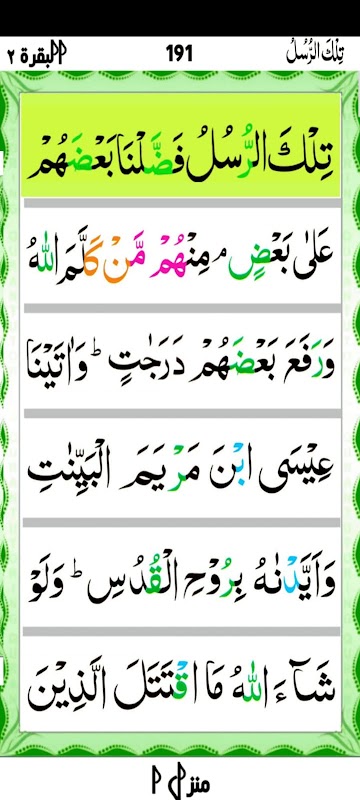 تِلْكَ الرُّسُلُ 191 البقرة ٢
تِلْكَ الرُّسُلُ فَضَّلْنَا بَعْضَهُمْ
عَلٰى بَعْضٍ ۘ مِنْهُمْ مَّنْ كَلَّمَ اللّٰهُ
وَرَفَعَ بَعْضَهُمْ دَرَجٰتٍ ؕ وَاٰتَيْنَا
عِيْسَى ابْنَ مَرْيَمَ الْبَيِّنٰتِ
وَاَيَّدْنٰهُ بِرُوْحِ الْقُدُسِ ؕ وَلَوْ
شَآءَ اللّٰهُ مَا اقْتَتَلَ الَّذِيْنَ
منزل ١